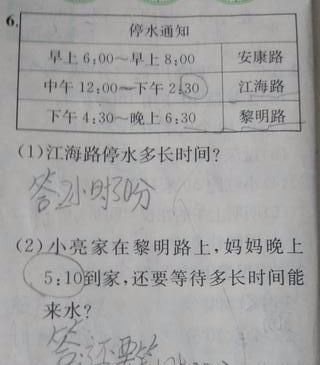 6.
停水通知
早上 6:00～早上 8:00 安康路
中午 12:00～下午 2:30 江海路
下午 4:30～晚上 6:30 黎明路
(1)江海路停水多长时间?
答2小时30分
(2)小亮家在黎明路上,妈妈晚上
5:10到家,还要等待多长时间能
来水?
答:还要等